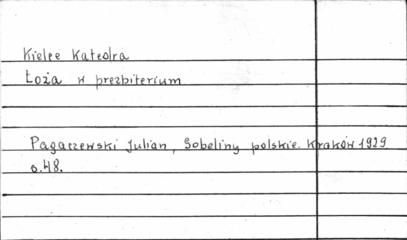 Kielce Katedra
Łoża w prezbiterium
Pagaczewski Julian, Gobeliny polskie. Kraków 1929
s.48.